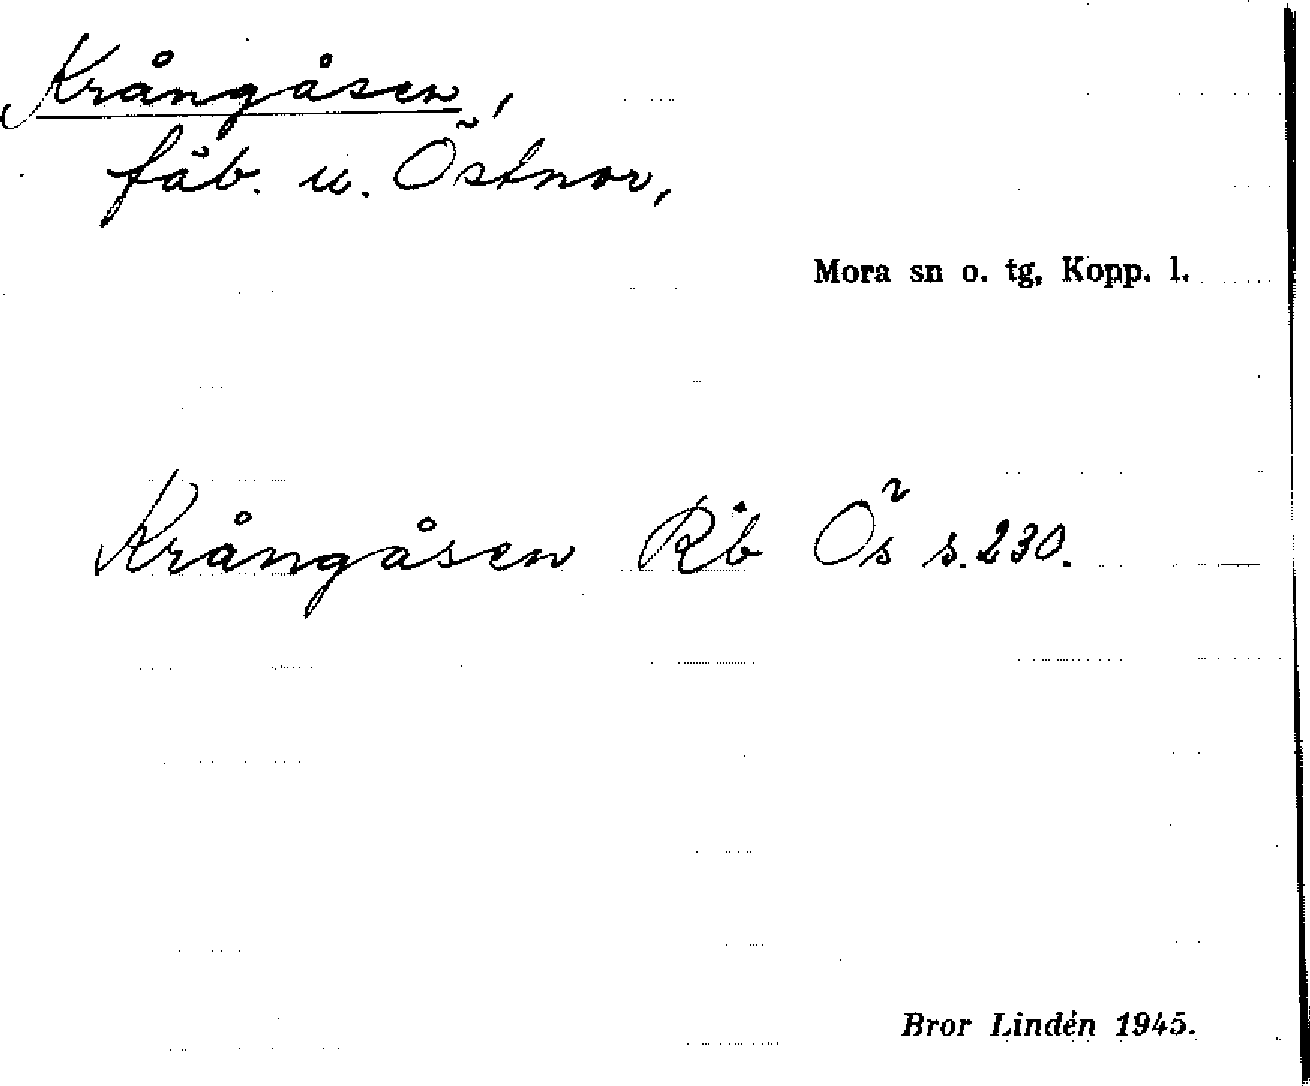 Krångåsen,
fäb. u. Östnor,
Mora sn o. tg, Kopp. l.
Krångåsen Rb Ös s. 230.
Bror Lindén 1945.